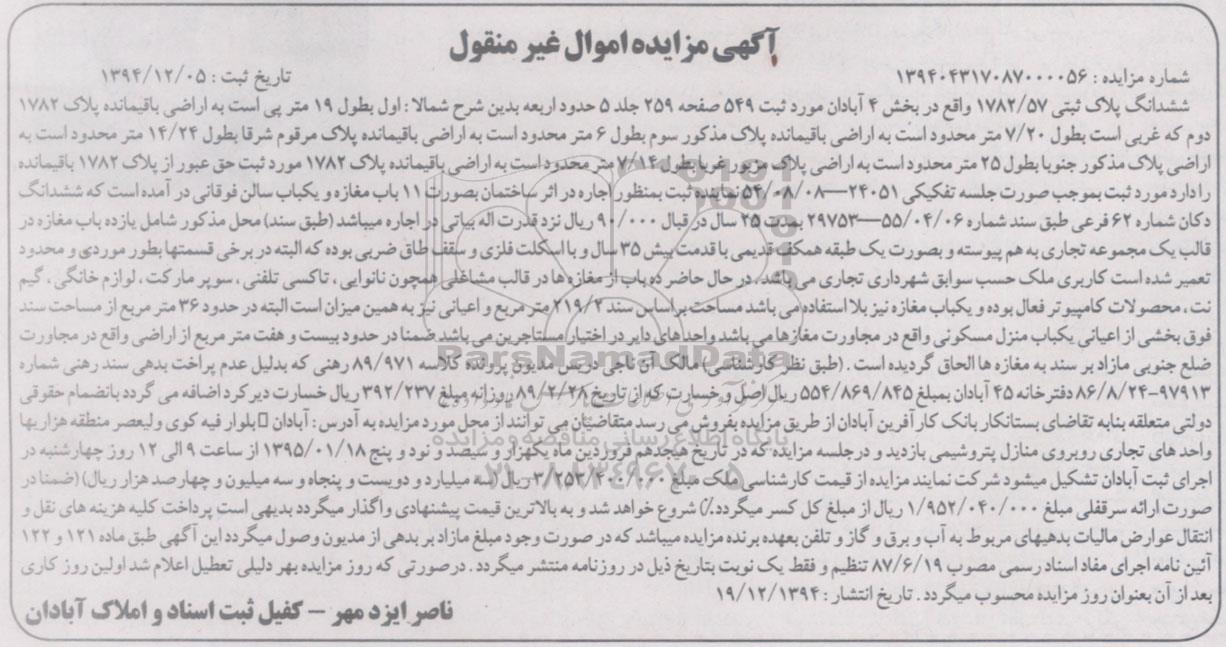 آگهی مزایده اموال غیر منقول
شماره مزایده : ۱۳۹۴۰۴۳۱۷۰۸۷۰۰۰۰۵۶
تاریخ ثبت : ۱۳۹۴/۱۲/۰۵
ششدانگ پلاک ثبتی ۱۷۸۲/۵۷ واقع در بخش ۴ آبادان مورد ثبت ۵۴۹ صفحه ۲۵۹ جلد ۵ حدود اربعه بدین شرح شمالا : اول بطول ۱۹ متر پی است به اراضی باقیمانده پلاک ۱۷۸۲
دوم که غربی است بطول ۷/۲۰ متر محدود است به اراضی باقیمانده پلاک مذکور سوم بطول ۶ متر محدود است به اراضی باقیمانده پلاک مرقوم شرقا بطول ۱۴/۲۴ متر محدود است به
اراضی پلاک مذکور جنوبا بطول ۲۵ متر محدود است به اراضی پلاک مزبور غربا بطول ۷/۱۴ متر محدود است به اراضی باقیمانده پلاک ۱۷۸۲ مورد ثبت حق عبور از پلاک ۱۷۸۲ باقیمانده
را دارد مورد ثبت بموجب صورت جلسه تفکیکی ۲۴۰۵۱—۵۴/۰۸/۰۸ نماینده ثبت بمنظور اجاره در اثر ساختمان بصورت ۱۱ باب مغازه و یکباب سالن فوقانی در آمده است که ششدانگ
دکان شماره ۶۲ فرعی طبق سند شماره ۲۹۷۵۳—۵۵/۰۴/۰۶ بمدت ۲۵ سال در قبال ۹۰/۰۰۰ ریال نزد قدرت اله بیاتی در اجاره میباشد (طبق سند) محل مذکور شامل یازده باب مغازه در
قالب یک مجموعه تجاری به هم پیوسته و بصورت یک طبقه همکف قدیمی با قدمت بیش ۳۵ سال و با اسکلت فلزی و سقف طاق ضربی بوده که البته در برخی قسمتها بطور موردی و محدود
تعمیر شده است کاربری ملک حسب سوابق شهرداری تجاری می باشد ، در حال حاضر ده باب از مغازه ها در قالب مشاغلی همچون نانوایی ، تاکسی تلفنی ، سوپر مارکت ، لوازم خانگی ، گیم
نت ، محصولات کامپیوتر فعال بوده و یکباب مغازه نیز بلا استفاده می باشد مساحت بر اساس سند ۲۱۹/۲ متر مربع و اعیانی نیز به همین میزان است البته در حدود ۳۶ متر مربع از مساحت سند
فوق بخشی از اعیانی یکباب منزل مسکونی واقع در مجاورت مغازها می باشد واحد های دایر در اختیار مستاجرین می باشد ضمنا در حدود بیست و هفت متر مربع از اراضی واقع در مجاورت
ضلع جنوبی مازاد بر سند به مغازه ها الحاق گردیده است . (طبق نظر کارشناسی) مالک آن ناجی دریس مدیون پرونده کلاسه ۸۹/۹۷۱ رهنی که بدلیل عدم پراخت بدهی سند رهنی شماره
۹۷۹۱۳-۸۶/۸/۲۴ دفترخانه ۴۵ آبادان بمبلغ ۵۵۴/۸۶۹/۸۴۵ ریال اصل و خسارت که از تاریخ ۸۹/۲/۲۸ روزانه مبلغ ۳۹۲/۲۳۷ ریال خسارت دیرکرد اضافه می گردد بانضمام حقوقی
دولتی متعلقه بنابه تقاضای بستانکار بانک کار آفرین آبادان از طریق مزایده بفروش می رسد متقاضیان می توانند از محل مورد مزایده به آدرس : آبادان بلوار فیه کوی ولیعصر منطقه هزاریها
واحد های تجاری روبروی منازل پتروشیمی بازدید و درجلسه مزایده که در تاریخ هیجدهم فروردین ماه یکهزار و سیصد و نود و پنج ۱۳۹۵/۰۱/۱۸ از ساعت ۹ الی ۱۲ روز چهارشنبه در
اجرای ثبت آبادان تشکیل میشود شرکت نمایند مزایده از قیمت کارشناسی ملک مبلغ ۳/۲۵۳/۴۰۰/۰۰۰ ریال (سه میلیارد و دویست و پنجاه و سه میلیون و چهارصد هزار ریال) (ضمنا در
صورت ارائه سرقفلی مبلغ ۱/۹۵۲/۰۴۰/۰۰۰ ریال از مبلغ کل کسر میگردد.) شروع خواهد شد و به بالاترین قیمت پیشنهادی واگذار میگردد بدیهی است پرداخت کلیه هزینه های نقل و
انتقال عوارض مالیات بدهیهای مربوط به آب و برق و گاز و تلفن بعهده برنده مزایده میباشد که در صورت وجود مبلغ مازاد بر بدهی از مدیون وصول میگردد این آگهی طبق ماده ۱۲۱ و ۱۲۲
آئین نامه اجرای مفاد اسناد رسمی مصوب ۸۷/۶/۱۹ تنظیم و فقط یک نوبت بتاریخ ذیل در روزنامه منتشر میگردد . درصورتی که روز مزایده بهر دلیلی تعطیل اعلام شد اولین روز کاری
بعد از آن بعنوان روز مزایده محسوب میگردد . تاریخ انتشار : ۱۹/۱۲/۱۳۹۴
ناصر ایزد مهر – کفیل ثبت اسناد و املاک آبادان
ParsNamadData
پایگاه اطلاع رسانی مناقصه و مزایده